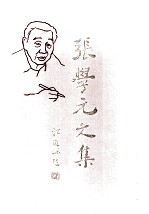 張學元文集